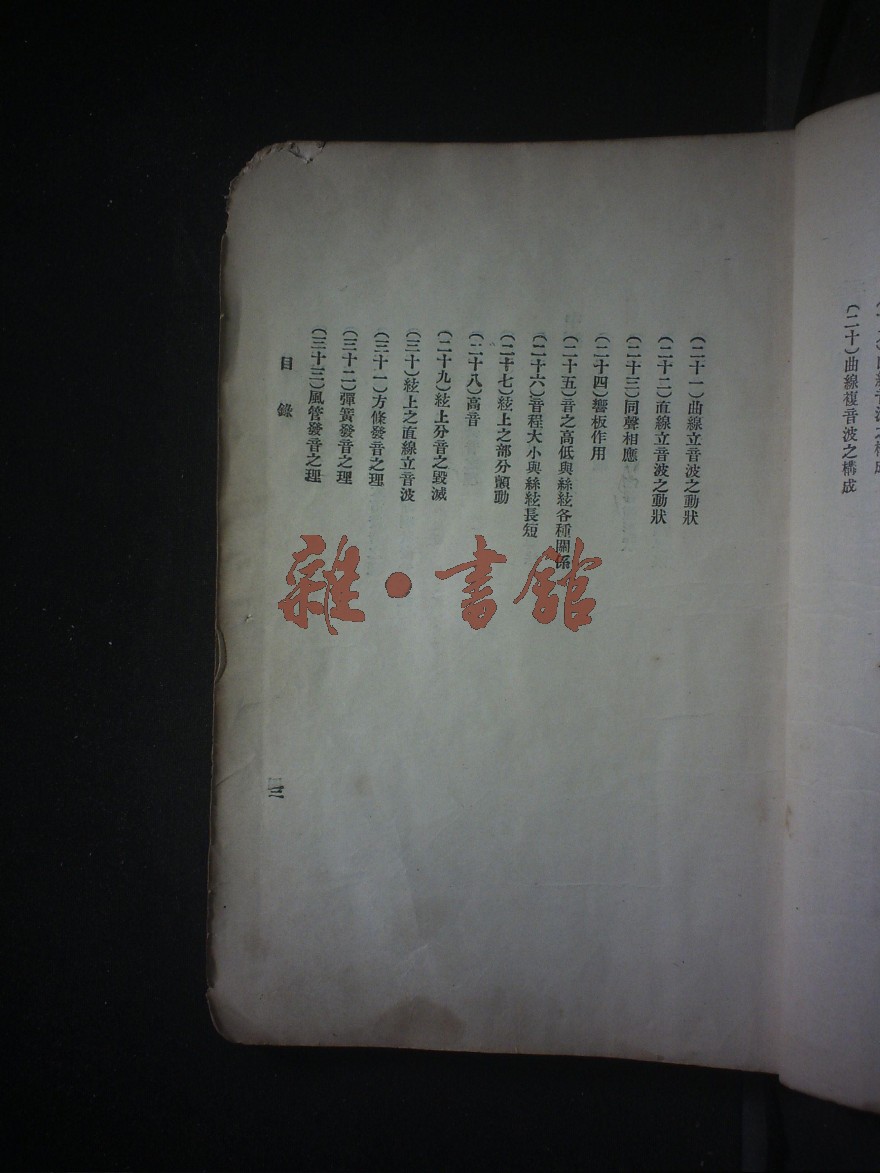 (二十)曲線複音波之構成
(二十一)曲線立音波之動狀
(二十二)直線立音波之動狀
(二十三)同聲相應
(二十四)響板作用
(二十五)音之高低與絲絃各種關係
(二十六)音程大小與絲絃長短
(二十七)絃上之部分顫動
(二十八)高音
(二十九)絃上分音之毀滅
(三十)絃上之直線立音波
(三十一)方條發音之理
(三十二)彈簧發音之理
(三十三)風管發音之理
目錄
三
雜·書館